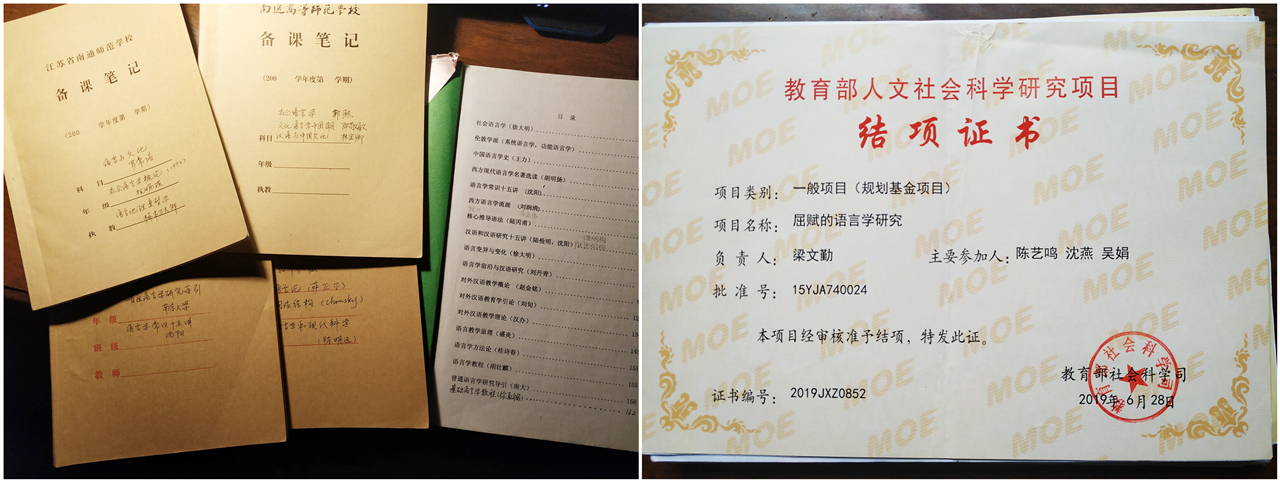 江苏省南通师范学校
备课笔记
(200 学年度第 学期)
语言与文化
科目
年级
执教
南通高等师范学校
备课笔记
(200 学年度第 学期)
社会语言学
文化语言学中国潮
科目 汉语与中国文化
年级
执教
南京大学
年级
语言学常识十五讲
沈阳
班级
教师
(Chomsky)
语言学和现代科学
(陈明远)
目录
社会语言学(徐大明)
伦敦学派(系统语言学,功能语言学)
中国语言学史(王力)
西方现代语言学名著选读(胡明扬)
语言学常识十五讲(沈阳)
西方语言学流派(刘润清)
核心推导语法(陆丙甫)
汉语和汉语研究十五讲(陆俭明,沈阳)
语言变异与变化(徐大明)
语言学前沿与汉语研究(刘丹青)
对外汉语教学概论(赵金铭)
对外汉语教育学引论(刘珣)
对外汉语教学理论(汉办)
语言教学原理(盛炎)
语言学方法论(桂诗春)
语言学教程(胡壮麟)
普通语言学研究导引(南大)
基础语言学教程(徐通锵)
教育部人文社会科学研究项目
结项证书
项目类别:一般项目(规划基金项目)
项目名称:屈赋的语言学研究
负责人:梁文勤 主要参加人:陈艺鸣 沈燕 吴娟
批准号:15YJA740024
本项目经审核准予结项,特发此证。
教育部社会科学司
证书编号:2019JXZ0852
2019年6月28日
教育部社会科学司
MOE